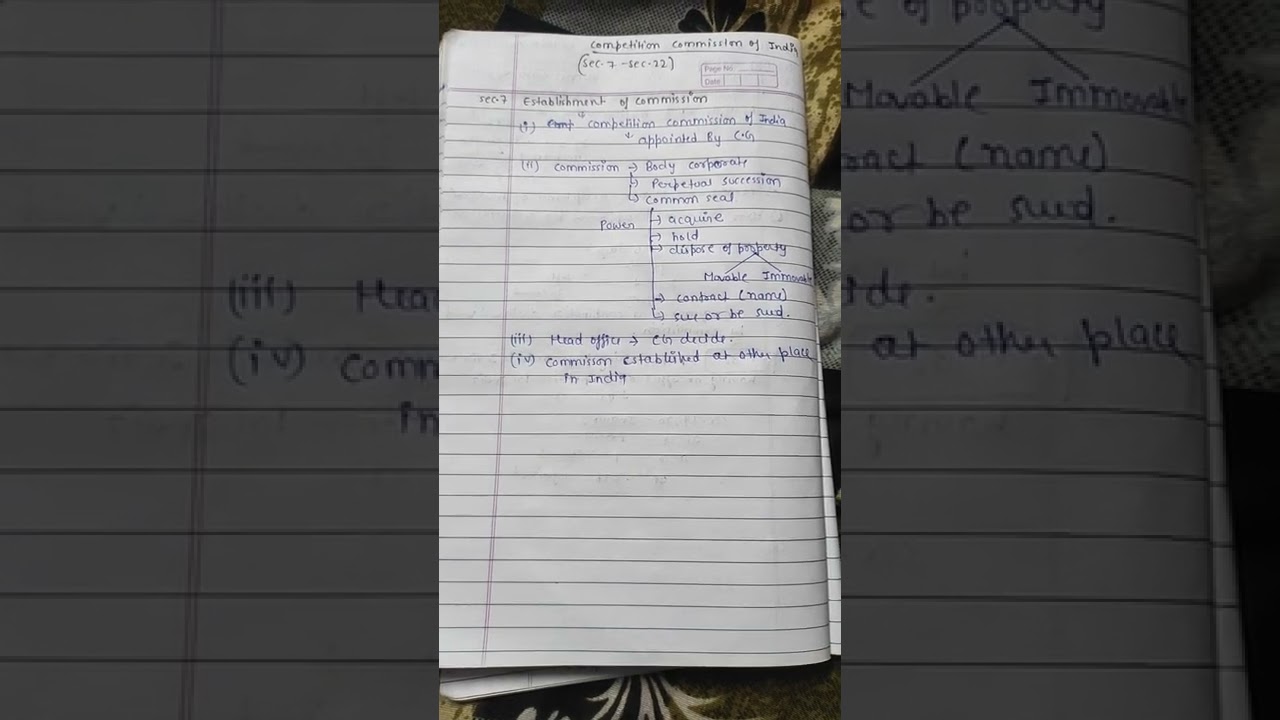 competition commission of India
(sec.7 - sec.22)
Page No.
Date
sec.7 Establishment of commission
(i) comp competition commission of India
↓ appointed By C.G
(ii) commission → Body corporate
↳ Perpetual succession
↳ common seal
Power → acquire
→ hold
→ dispose of property
Movable Immovable
→ contract (name)
↳ sue or be sued.
(iii) Head office → CG decide.
(iv) commisson established at other place
in India